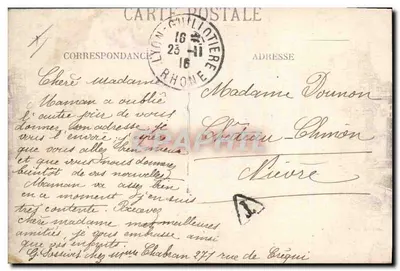 CARTE POSTALE
CORRESPONDANCE
ADRESSE
LYON-GUILLOTIERE
16
23 -11
16
RHONE
Chère Madame
Maman a oublié
l'autre jour de vous
donner son adresse je
vous l'envoie
que vous allez
et que vous nous donnerez
bientôt de vos nouvelles
Maman va assez bien
en ce moment j'en suis
très contente. Recevez
chère madame mes meilleures
amitiés je vous embrasse ainsi
que vos enfants.
chez Chabran 271 rue de Créqui
Madame Dounon
Château-Chinon
Nièvre
T